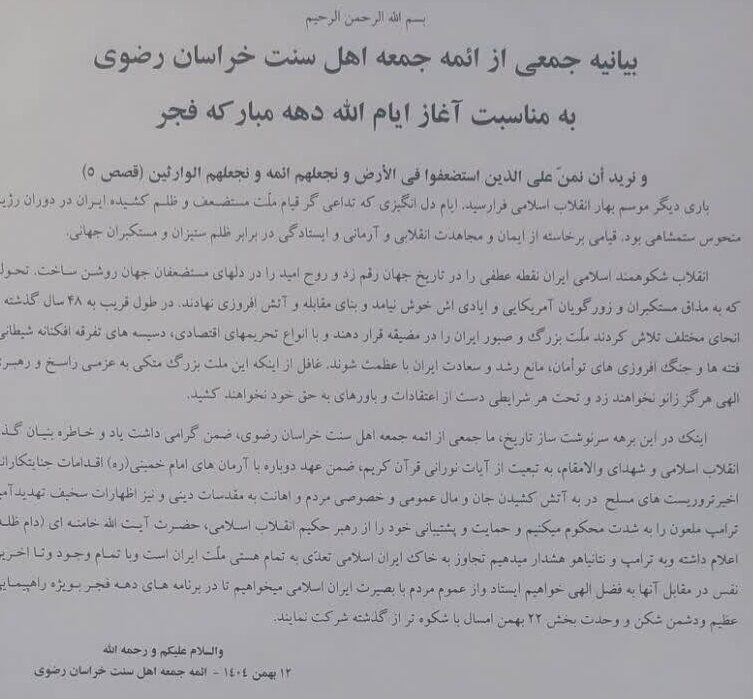 بسم الله الرحمن الرحیم
بیانیه جمعی از ائمه جمعه اهل سنت خراسان رضوی
به مناسبت آغاز ایام الله دهه مبارکه فجر
و نرید أن نمنّ علی الذین استضعفوا فی الأرض و نجعلهم ائمه و نجعلهم الوارثین (قصص ۵)
باری دیگر موسم بهار انقلاب اسلامی فرارسید. ایام دل انگیزی که تداعی گر قیام ملّت مستضعف و ظلم کشیده ایران در دوران
منحوس ستمشاهی بود. قیامی برخاسته از ایمان و مجاهدت انقلابی و آرمانی و ایستادگی در برابر ظلم ستیزان و مستکبران جهانی.
انقلاب شکوهمند اسلامی ایران نقطه عطفی را در تاریخ جهان رقم زد و روح امید را در دلهای مستضعفان جهان روشن ساخت.
که به مذاق مستکبران و زورگویان آمریکایی و ایادی اش خوش نیامد و بنای مقابله و آتش افروزی نهادند. در طول قریب به ۴۸ سال گذشته
انحای مختلف تلاش کردند ملّت بزرگ و صبور ایران را در مضیقه قرار دهند و با انواع تحریمهای اقتصادی، دسیسه های تفرقه افکنانه
فتنه ها و جنگ افروزی های توأمان، مانع رشد و سعادت ایران با عظمت شوند. غافل از اینکه این ملت بزرگ متکی به عزمی راسخ و
الهی هرگز زانو نخواهند زد و تحت هر شرایطی دست از اعتقادات و باورهای به حق خود نخواهند کشید.
اینک در این برهه سرنوشت ساز تاریخ، ما جمعی از ائمه جمعه اهل سنت خراسان رضوی، ضمن گرامی داشت یاد و خاطره بنیان
انقلاب اسلامی و شهدای والامقام، به تبعیت از آیات نورانی قرآن کریم، ضمن عهد دوباره با آرمان های امام خمینی(ره) اقدامات
اخیرتروریست های مسلح در به آتش کشیدن جان و مال عمومی و خصوصی مردم و اهانت به مقدسات دینی و نیز اظهارات سخیف
ترامپ ملعون را به شدت محکوم میکنیم و حمایت و پشتیبانی خود را از رهبر حکیم انقلاب اسلامی، حضرت آیت الله خامنه ای (دام
اعلام داشته وبه ترامپ و نتانیاهو هشدار میدهیم تجاوز به خاک ایران اسلامی تعدّی به تمام هستی ملّت ایران است وبا تمام وجود وتا
نفس در مقابل آنها به فضل الهی خواهیم ایستاد واز عموم مردم با بصیرت ایران اسلامی میخواهیم تا در برنامه های دهه فجر بویژه
عظیم ودشمن شکن و وحدت بخش ۲۲ بهمن امسال با شکوه تر از گذشته شرکت نمایند.
والسلام علیکم و رحمه الله
۱۲ بهمن ۱۴۰۴ - ائمه جمعه اهل سنت خراسان رضوی